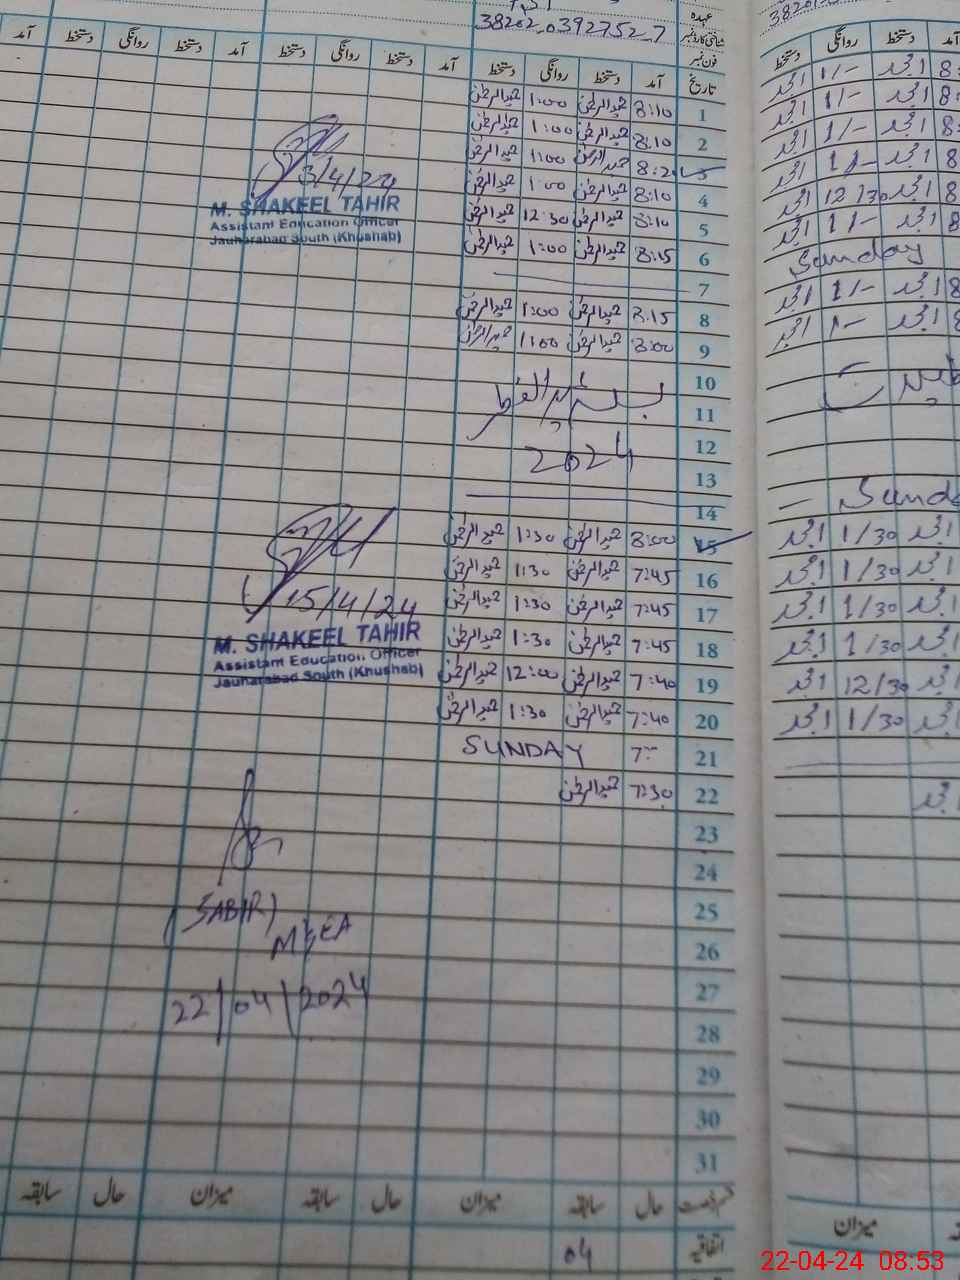 عہدہ
شناختی کارڈ نمبر 38202-0392752-7
فون نمبر
تاریخ آمد دستخط روانگی دستخط آمد دستخط روانگی دستخط آمد دستخط روانگی دستخط آمد
1 8:10 عبدالرحمٰن 1:00 عبدالرحمٰن
2 8:10 عبدالرحمٰن 1:00 عبدالرحمٰن
3 8:20 عبدالرحمٰن 1:00 عبدالرحمٰن
4 8:10 عبدالرحمٰن 1:00 عبدالرحمٰن
5 8:10 عبدالرحمٰن 12:30 عبدالرحمٰن
6 8:15 عبدالرحمٰن 1:00 عبدالرحمٰن
7
8 8:15 عبدالرحمٰن 1:00 عبدالرحمٰن
9 8:00 عبدالرحمٰن 1:00 عبدالرحمٰن
10
11 عیدالفطر
12 2024
13
14
15 8:00 عبدالرحمٰن 1:30 عبدالرحمٰن
16 7:45 عبدالرحمٰن 1:30 عبدالرحمٰن
17 7:45 عبدالرحمٰن 1:30 عبدالرحمٰن
18 7:45 عبدالرحمٰن 1:30 عبدالرحمٰن
19 7:40 عبدالرحمٰن 12:00 عبدالرحمٰن
20 7:40 عبدالرحمٰن 1:30 عبدالرحمٰن
21 SUNDAY
22 7:30 عبدالرحمٰن
23
24
25
26
27
28
29
30
31
حال سابقہ میزان حال سابقہ میزان حال سابقہ
اتفاقیہ 04
3/4/24
M. SHAKEEL TAHIR
Assistant Education Officer
Jauharabad South (Khushab)
15/4/24
M. SHAKEEL TAHIR
Assistant Education Officer
Jauharabad South (Khushab)
(SABIR)
MEA
22/04/2024
38201
آمد دستخط روانگی دستخط
8: امجد 1/- امجد
8: امجد 1/- امجد
8: امجد 1/- امجد
8 امجد 1/- امجد
8 امجد 12/30 امجد
8 امجد 1/- امجد
Sunday
8 امجد 1/- امجد
8 امجد 1/- امجد
Sunda
امجد 1/30 امجد
امجد 1/30 امجد
امجد 1/30 امجد
امجد 1/30 امجد
امجد 12/30 امجد
امجد 1/30 امجد
امجد
میزان
22-04-24 08:53